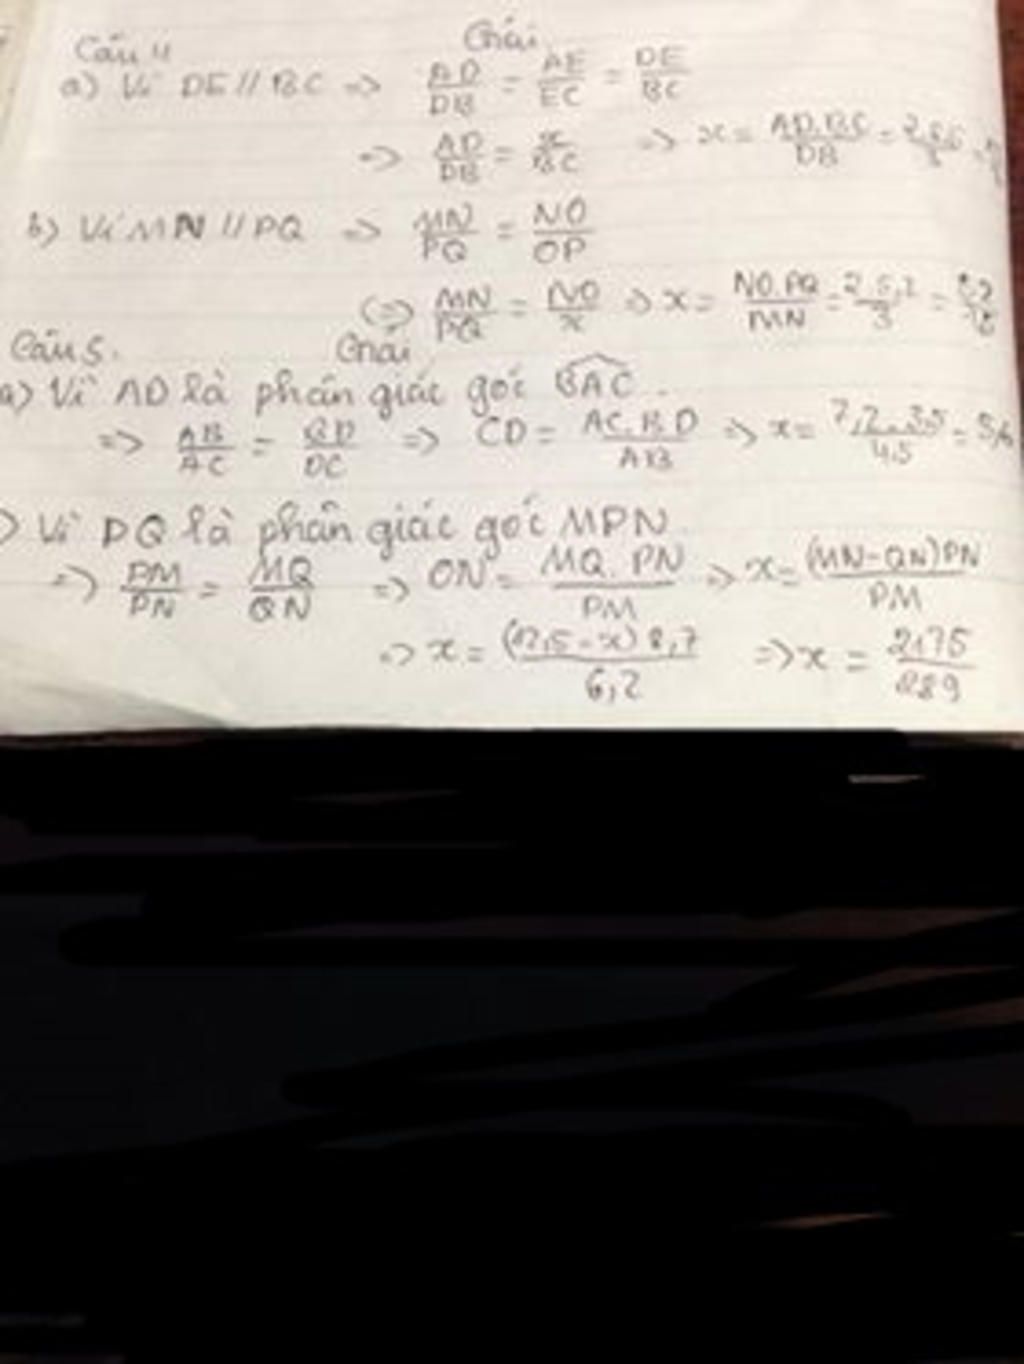 Câu 4 Giải
a) Vì DE // BC => AD/DB = AE/EC = DE/BC
=> AD/DB = x/BC => x = AD.BC/DB =
b) Vì MN // PQ => MN/PQ = NO/OP
(=> MN/PQ = NO/x => x = NO.PQ/MN = 2.5,2/3 =
Câu 5. Giải
a) Vì AD là phân giác góc BAC.
=> AB/AC = BD/DC => CD = AC.BD/AB => x = 7,2.3,5/4,5 = 5,6
) Vì PQ là phân giác góc MPN
=> PM/PN = MQ/QN => QN = MQ.PN/PM => x = (MN-QN)PN/PM
=> x = (12,5-x)8,7/6,2 => x = 2175/289